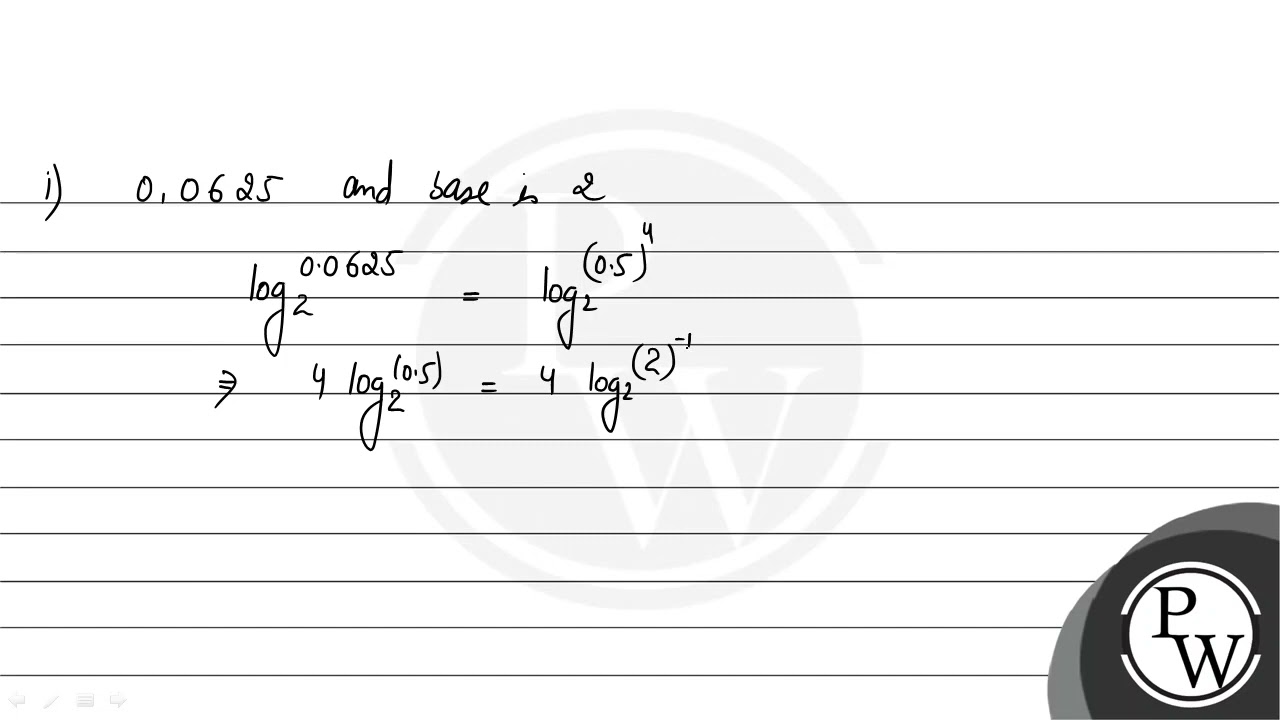 i) 0.0625 and base is 2
log₂^0.0625 = log₂^(0.5)^4
⇒ 4 log₂^(0.5) = 4 log₂^(2)^-1
PW
PW